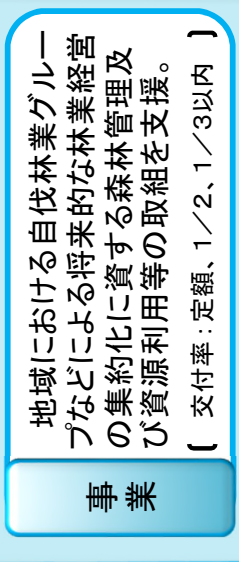 事業
地域における自伐林業グルー
プなどによる将来的な林業経営
の集約化に資する森林管理及
び資源利用等の取組を支援。
〔 交付率:定額、1/2、1/3以内 〕